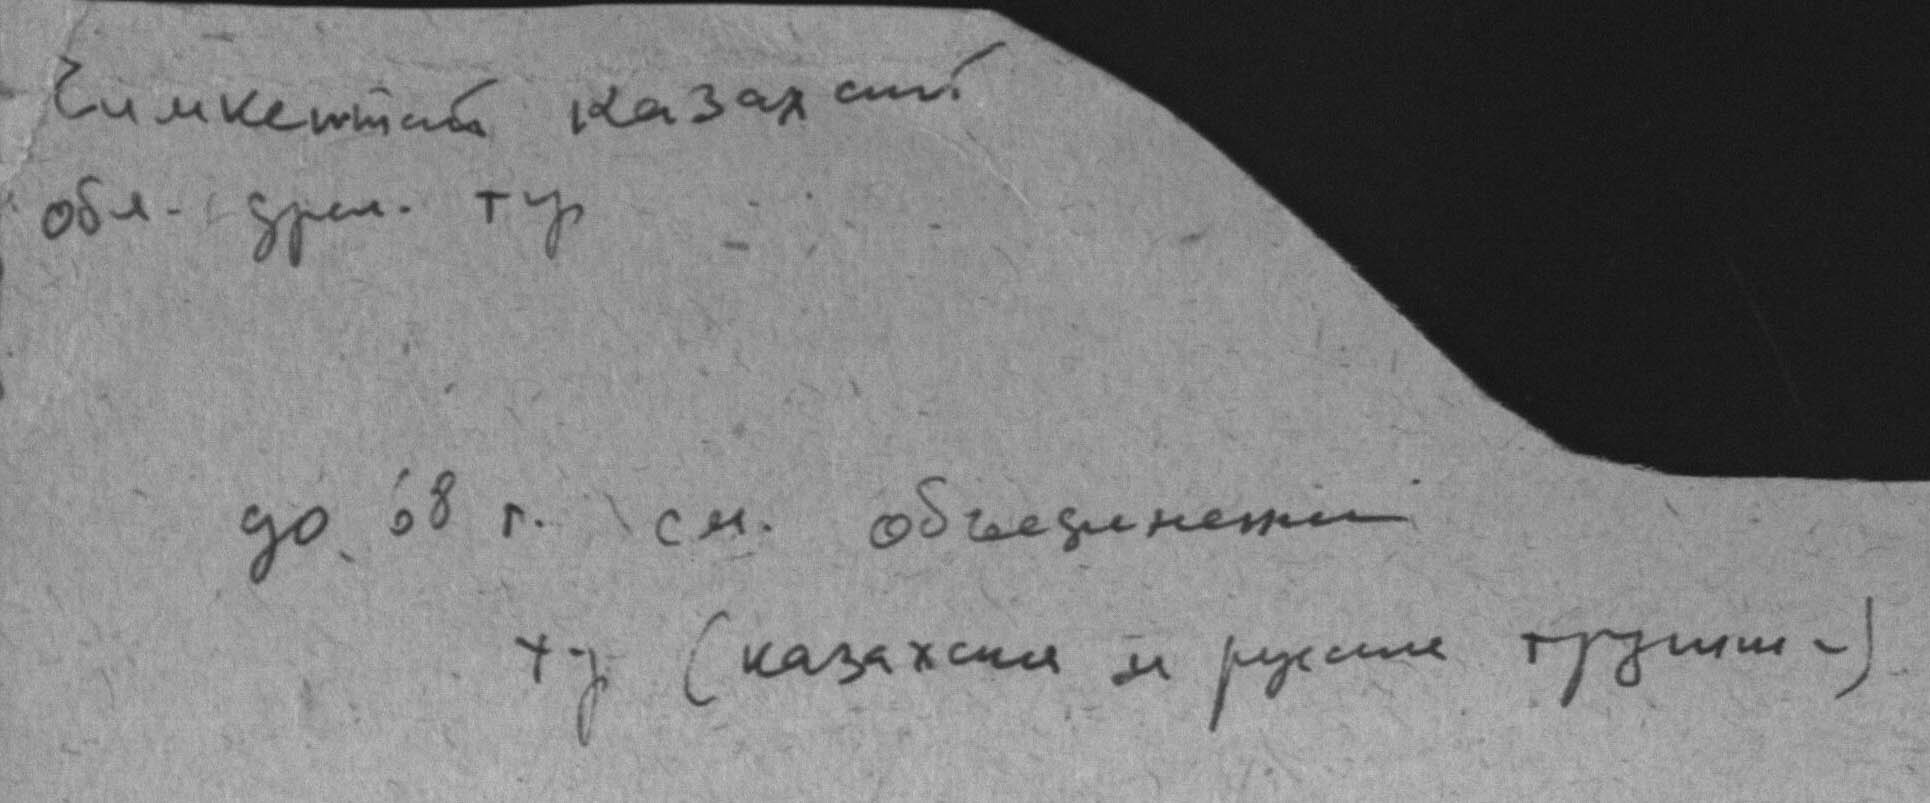 Чимкентский казахский
обл. драм. т-р
до 68 г. см. объединенный
т-р (казахская и русская труппы)